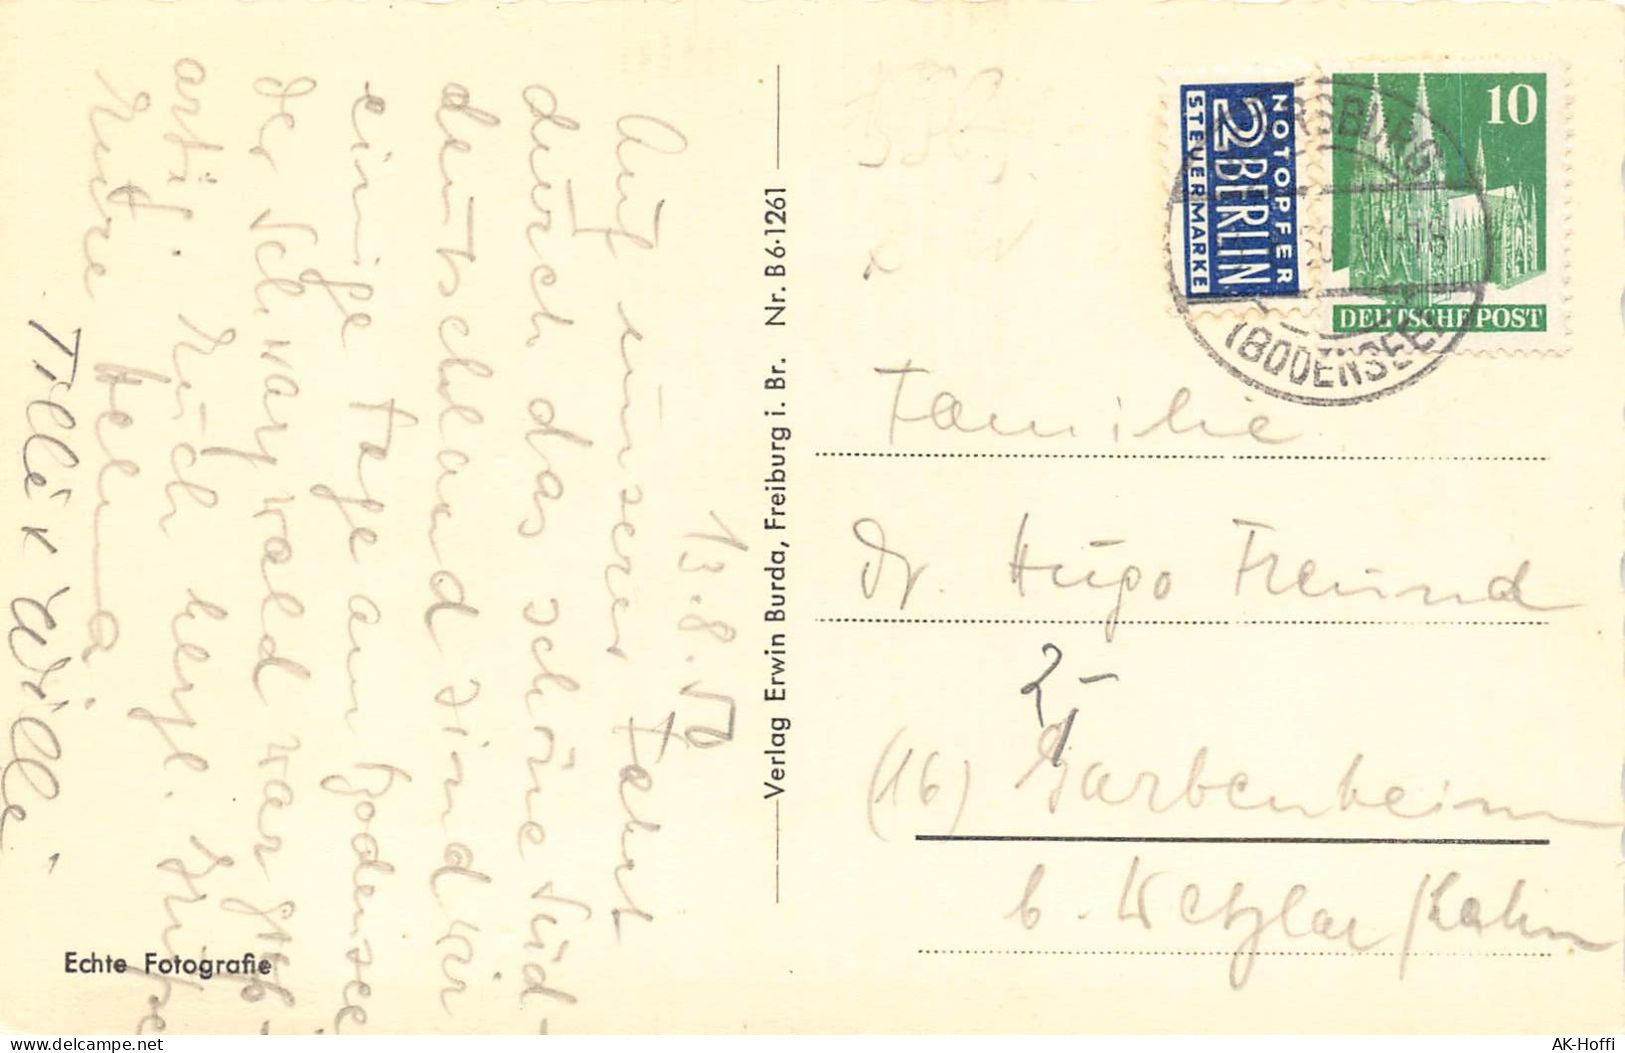 13.8.50
Auf unserer Fahrt
durch das schöne Süd-
deutschland sind wir
einige Tage am Bodensee
der Schwarzwald war groß-
artig. Euch herzl. Grüße
Eure Helma
Tilli & Wille.
Echte Fotografie
Verlag Erwin Burda, Freiburg i. Br. Nr. B6·1261
NOTOPFER
2 BERLIN
STEUERMARKE
10
DEUTSCHE POST
(BODENSEE)
Familie
Dr. Hugo Freund
2,-
(16) Garbenheim
b. Wetzlar/Lahn
AK-Hoffi